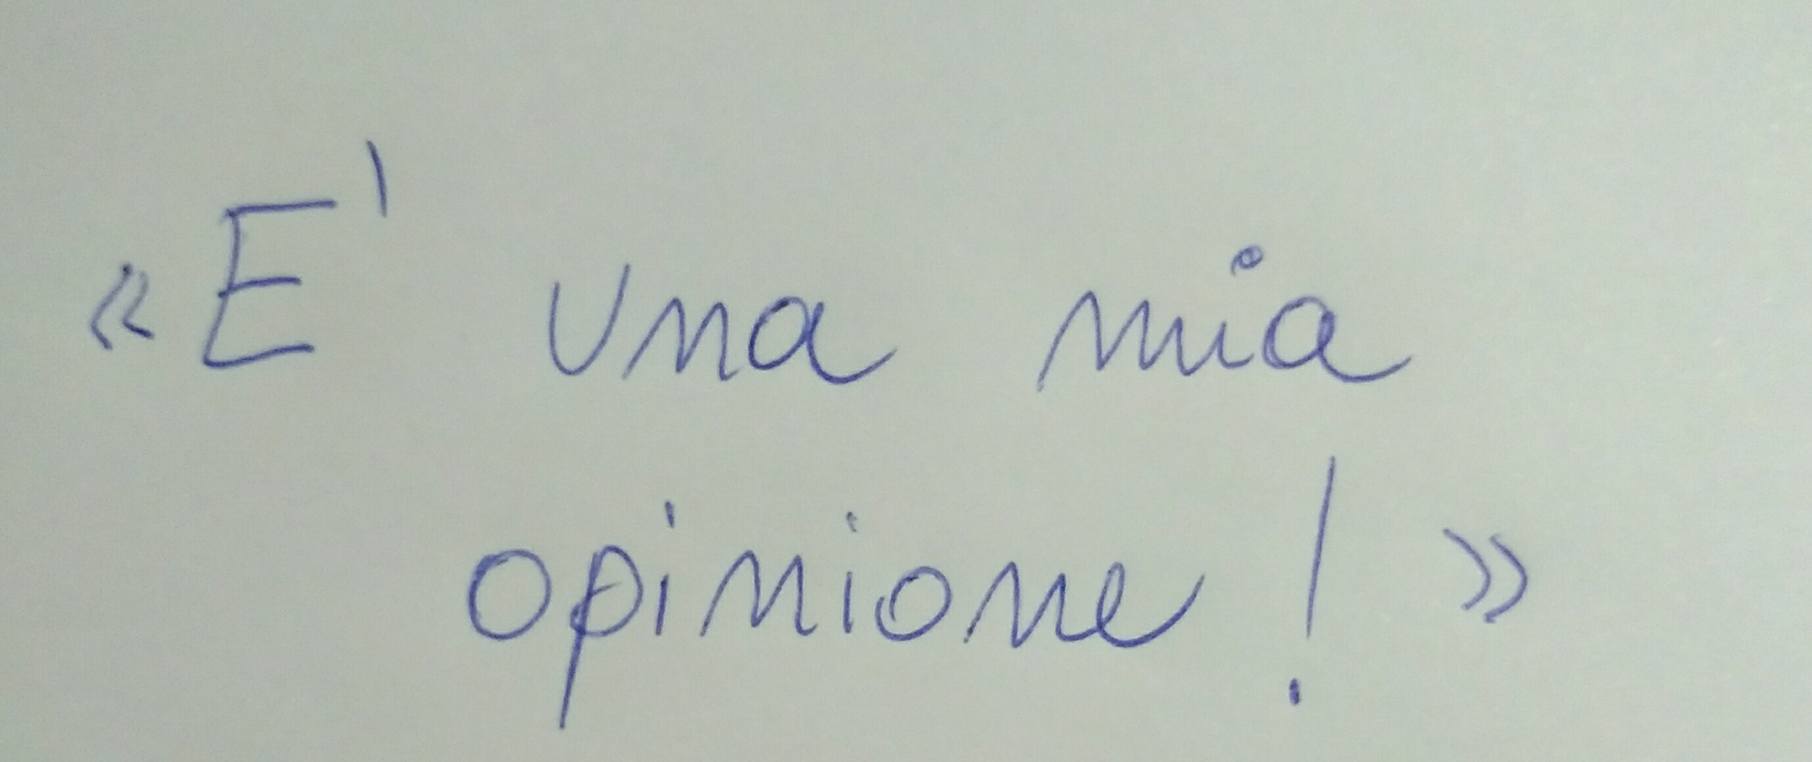 «E' una mia
opinione!»